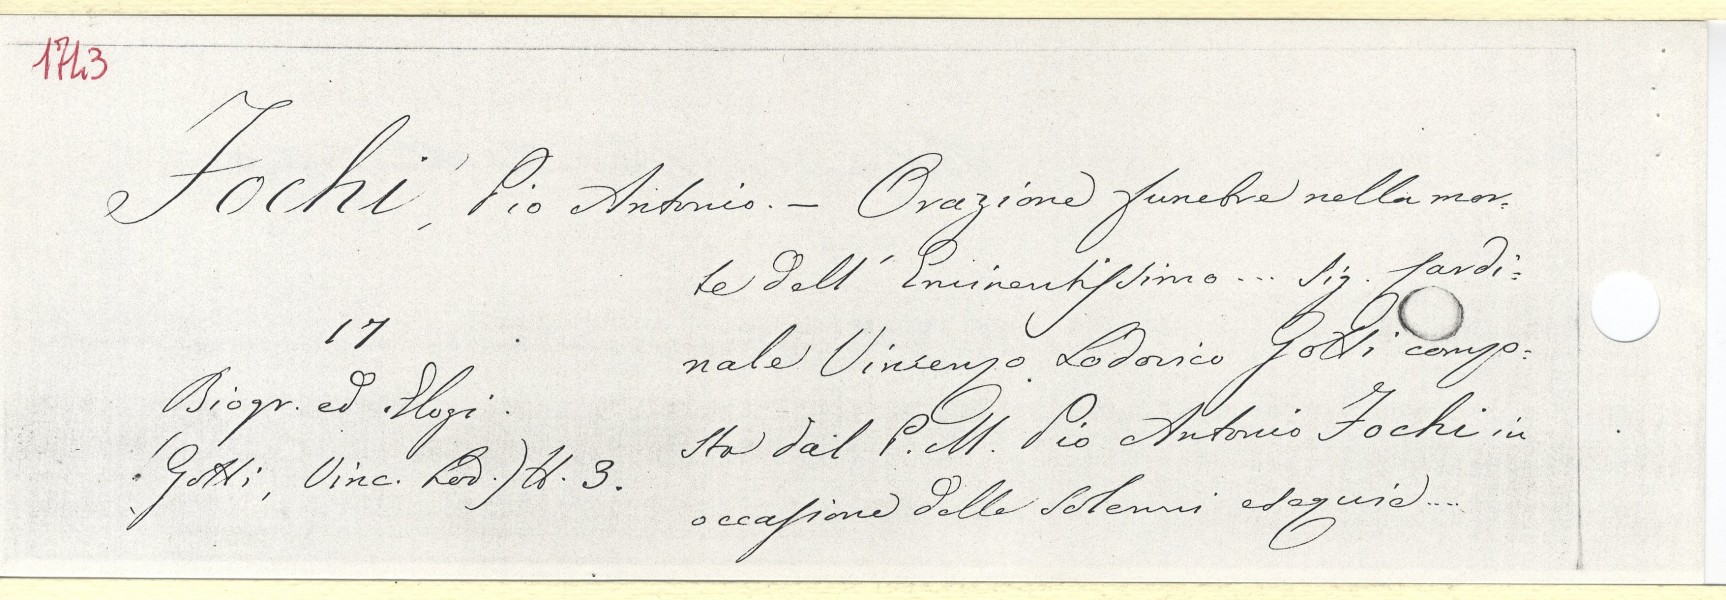 1743
Fochi, Pio Antonio. — Orazione funebre nella mor=
te dell' Eminentissimo ... Sig. Cardi=
nale Vincenzo Lodovico Gotti compo=
sta dal P. M. Pio Antonio Fochi in
occasione delle solenni esequie ....
17
Biogr. ed Elogi.
(Gotti, Vinc. Lod.) N. 3.